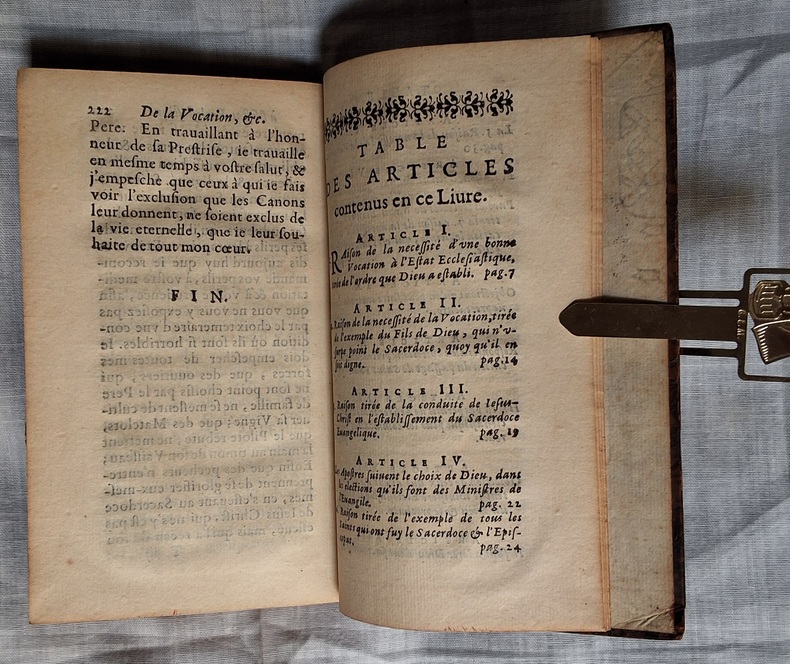 222 De la Vocation, &c.
Pere. En trauaillant à l'hon-
neur de sa Prestrise, ie trauaille
en mesme temps à vostre salut, &
j'empesche que ceux à qui ie fais
voir l'exclusion que les Canons
leur donnent, ne soient exclus de
la vie eternelle, que ie leur sou-
haite de tout mon cœur.
FIN.
TABLE
DES ARTICLES
contenus en ce Liure.
ARTICLE I.
Raison de la necessité d'vne bonne
Vocation à l'Estat Ecclesiastique,
de l'ordre que Dieu a establi. pag. 7
ARTICLE II.
Raison de la necessité de la Vocation, tirée
de l'exemple du Fils de Dieu, qui n'v-
point le Sacerdoce, quoy qu'il en
digne. pag. 14
ARTICLE III.
Raison tirée de la conduite de Iesus-
Christ en l'establissement du Sacerdoce
Euangelique. pag. 19
ARTICLE IV.
Apostres suiuent le choix de Dieu, dans
les élections qu'ils font des Ministres de
l'Euangile. pag. 22
Raison tirée de l'exemple de tous les
Saints qui ont fuy le Sacerdoce & l'Epis-
pag. 24